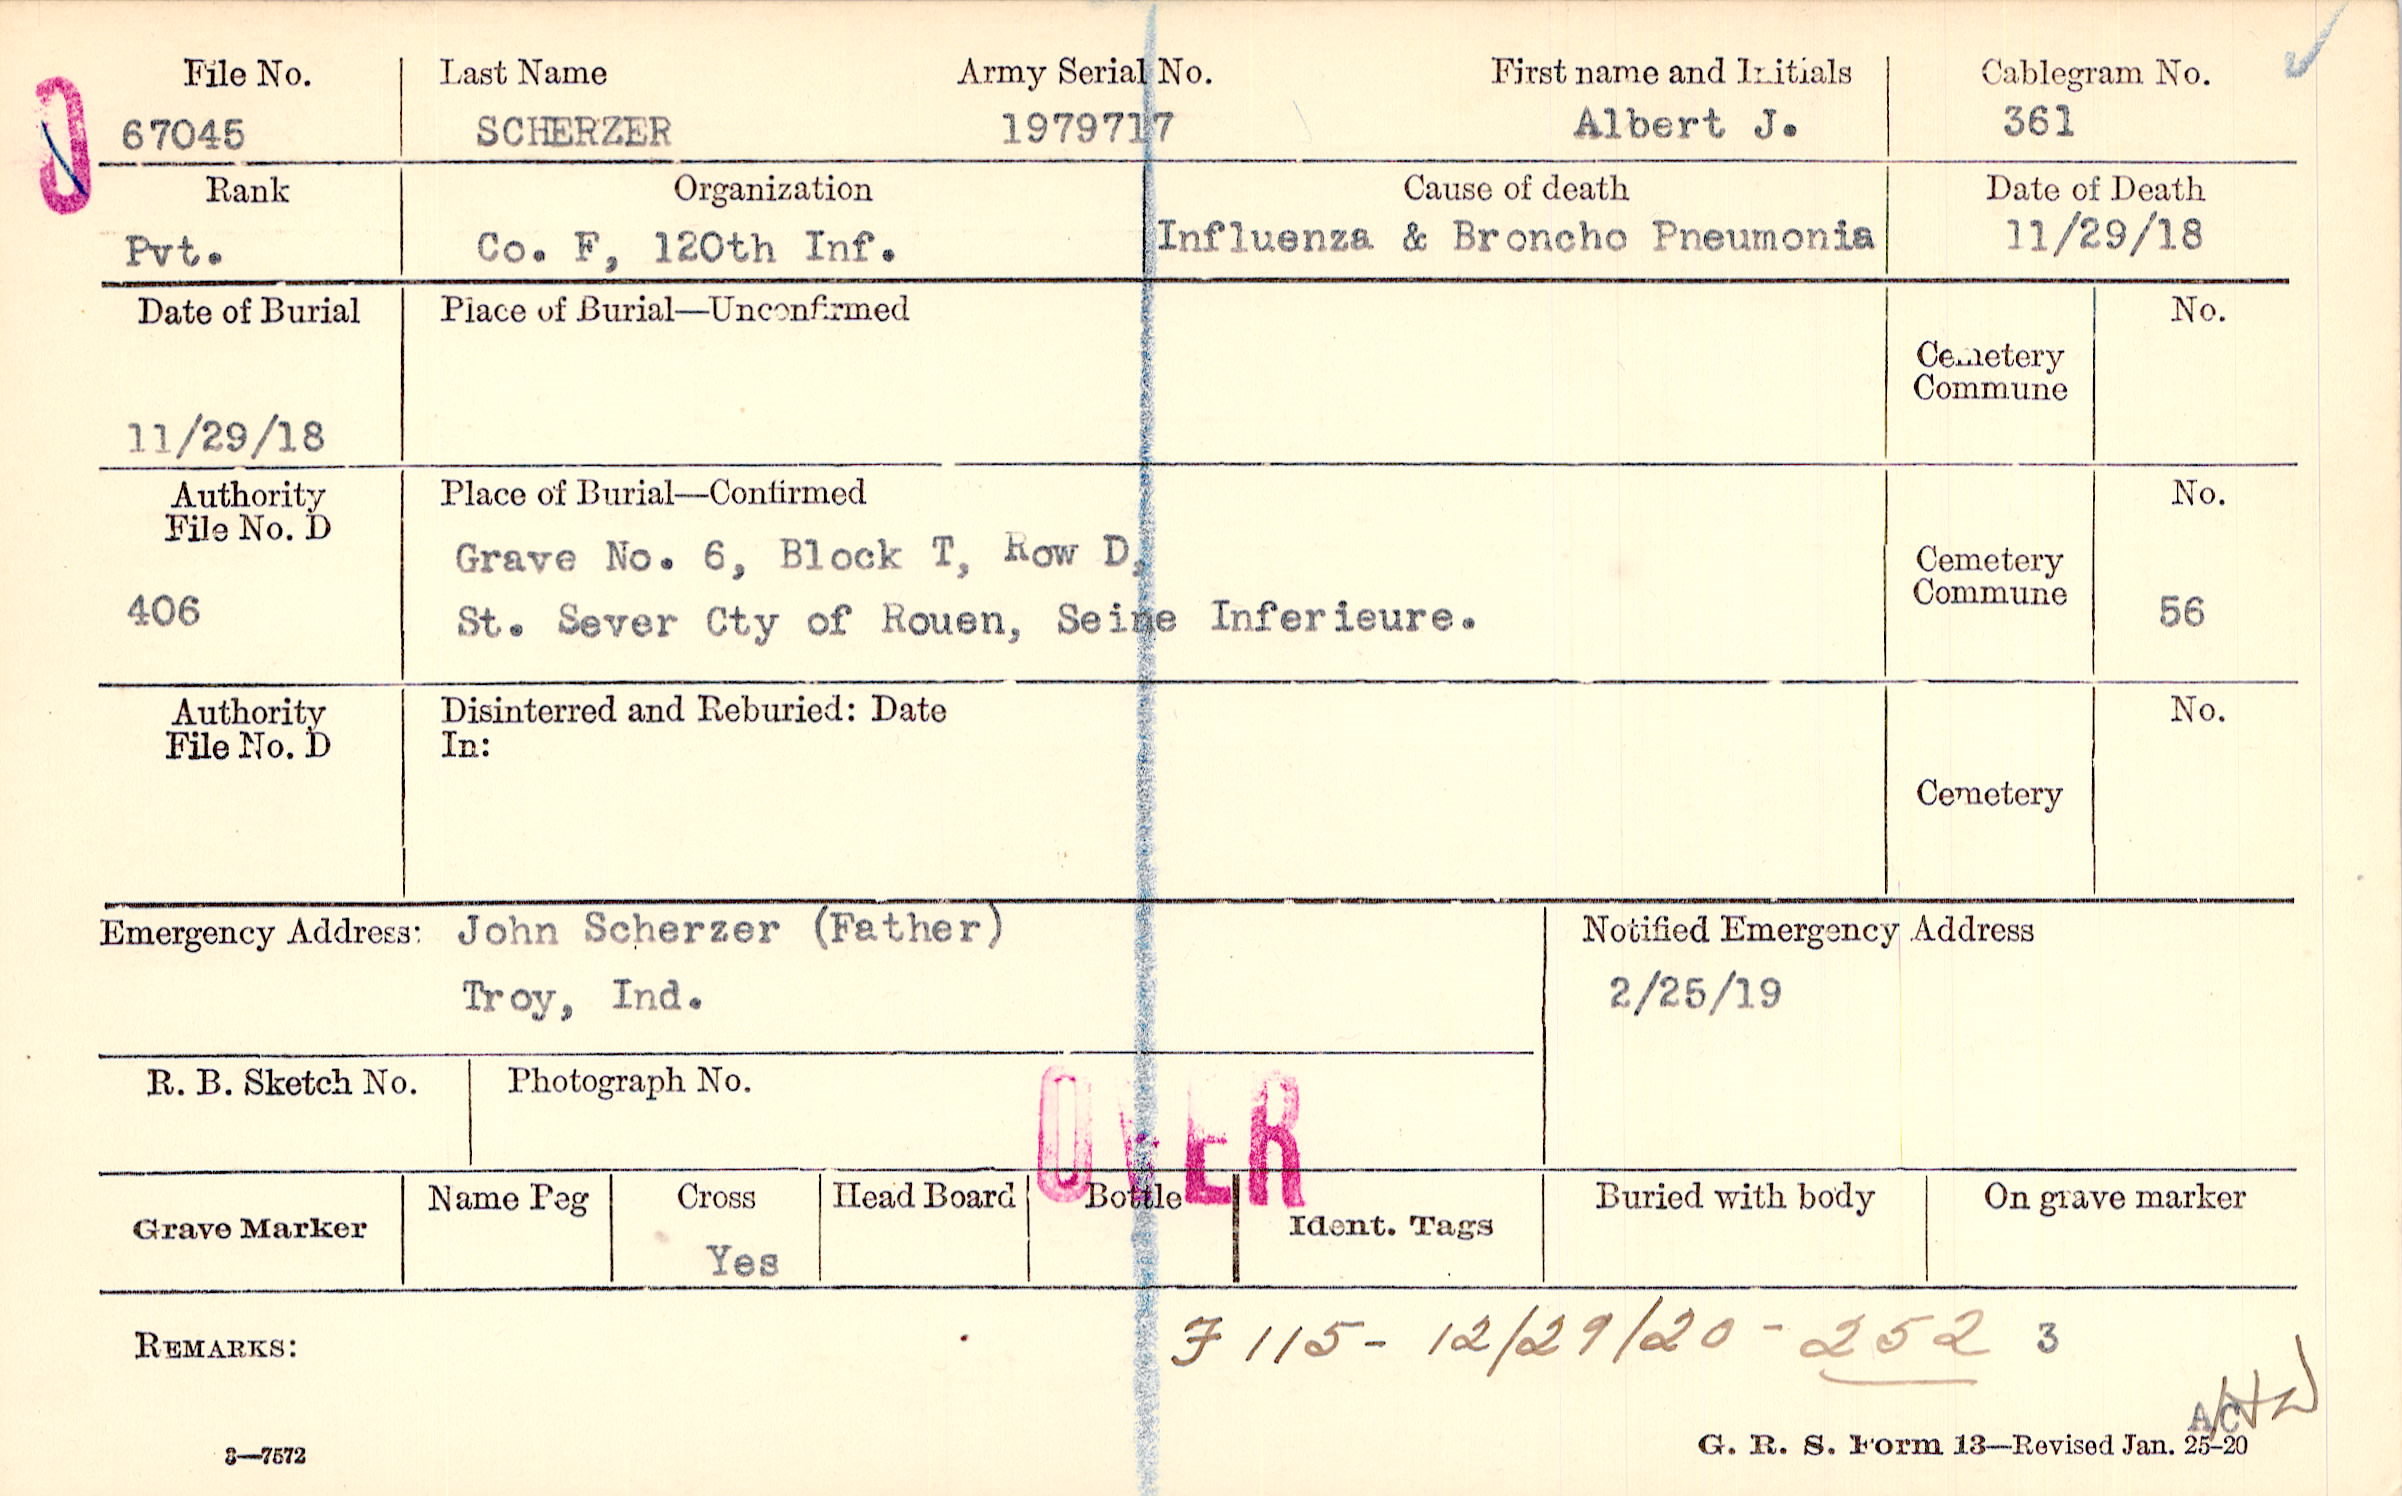 File No. Last Name Army Serial No. First name and Initials Cablegram No.
67045 SCHERZER 1979717 Albert J. 361
Rank Organization Cause of death Date of Death
Pvt. Co. F, 120th Inf. Influenza & Broncho Pneumonia 11/29/18
Date of Burial Place of Burial—Unconfirmed No.
Cemetery
Commune
11/29/18
Authority Place of Burial—Confirmed No.
File No. D
Grave No. 6, Block T, Row D,
Cemetery
Commune
406 St. Sever Cty of Rouen, Seine Inferieure. 56
Authority Disinterred and Reburied: Date No.
File No. D In:
Cemetery
Emergency Address: John Scherzer (Father) Notified Emergency Address
Troy, Ind. 2/25/19
R. B. Sketch No. Photograph No.
OVER
Grave Marker Name Peg Cross Head Board Bottle Ident. Tags Buried with body On grave marker
Yes
REMARKS: F 115- 12/29/20 - 252 3
AC
3—7572 G. R. S. Form 13—Revised Jan. 25-20